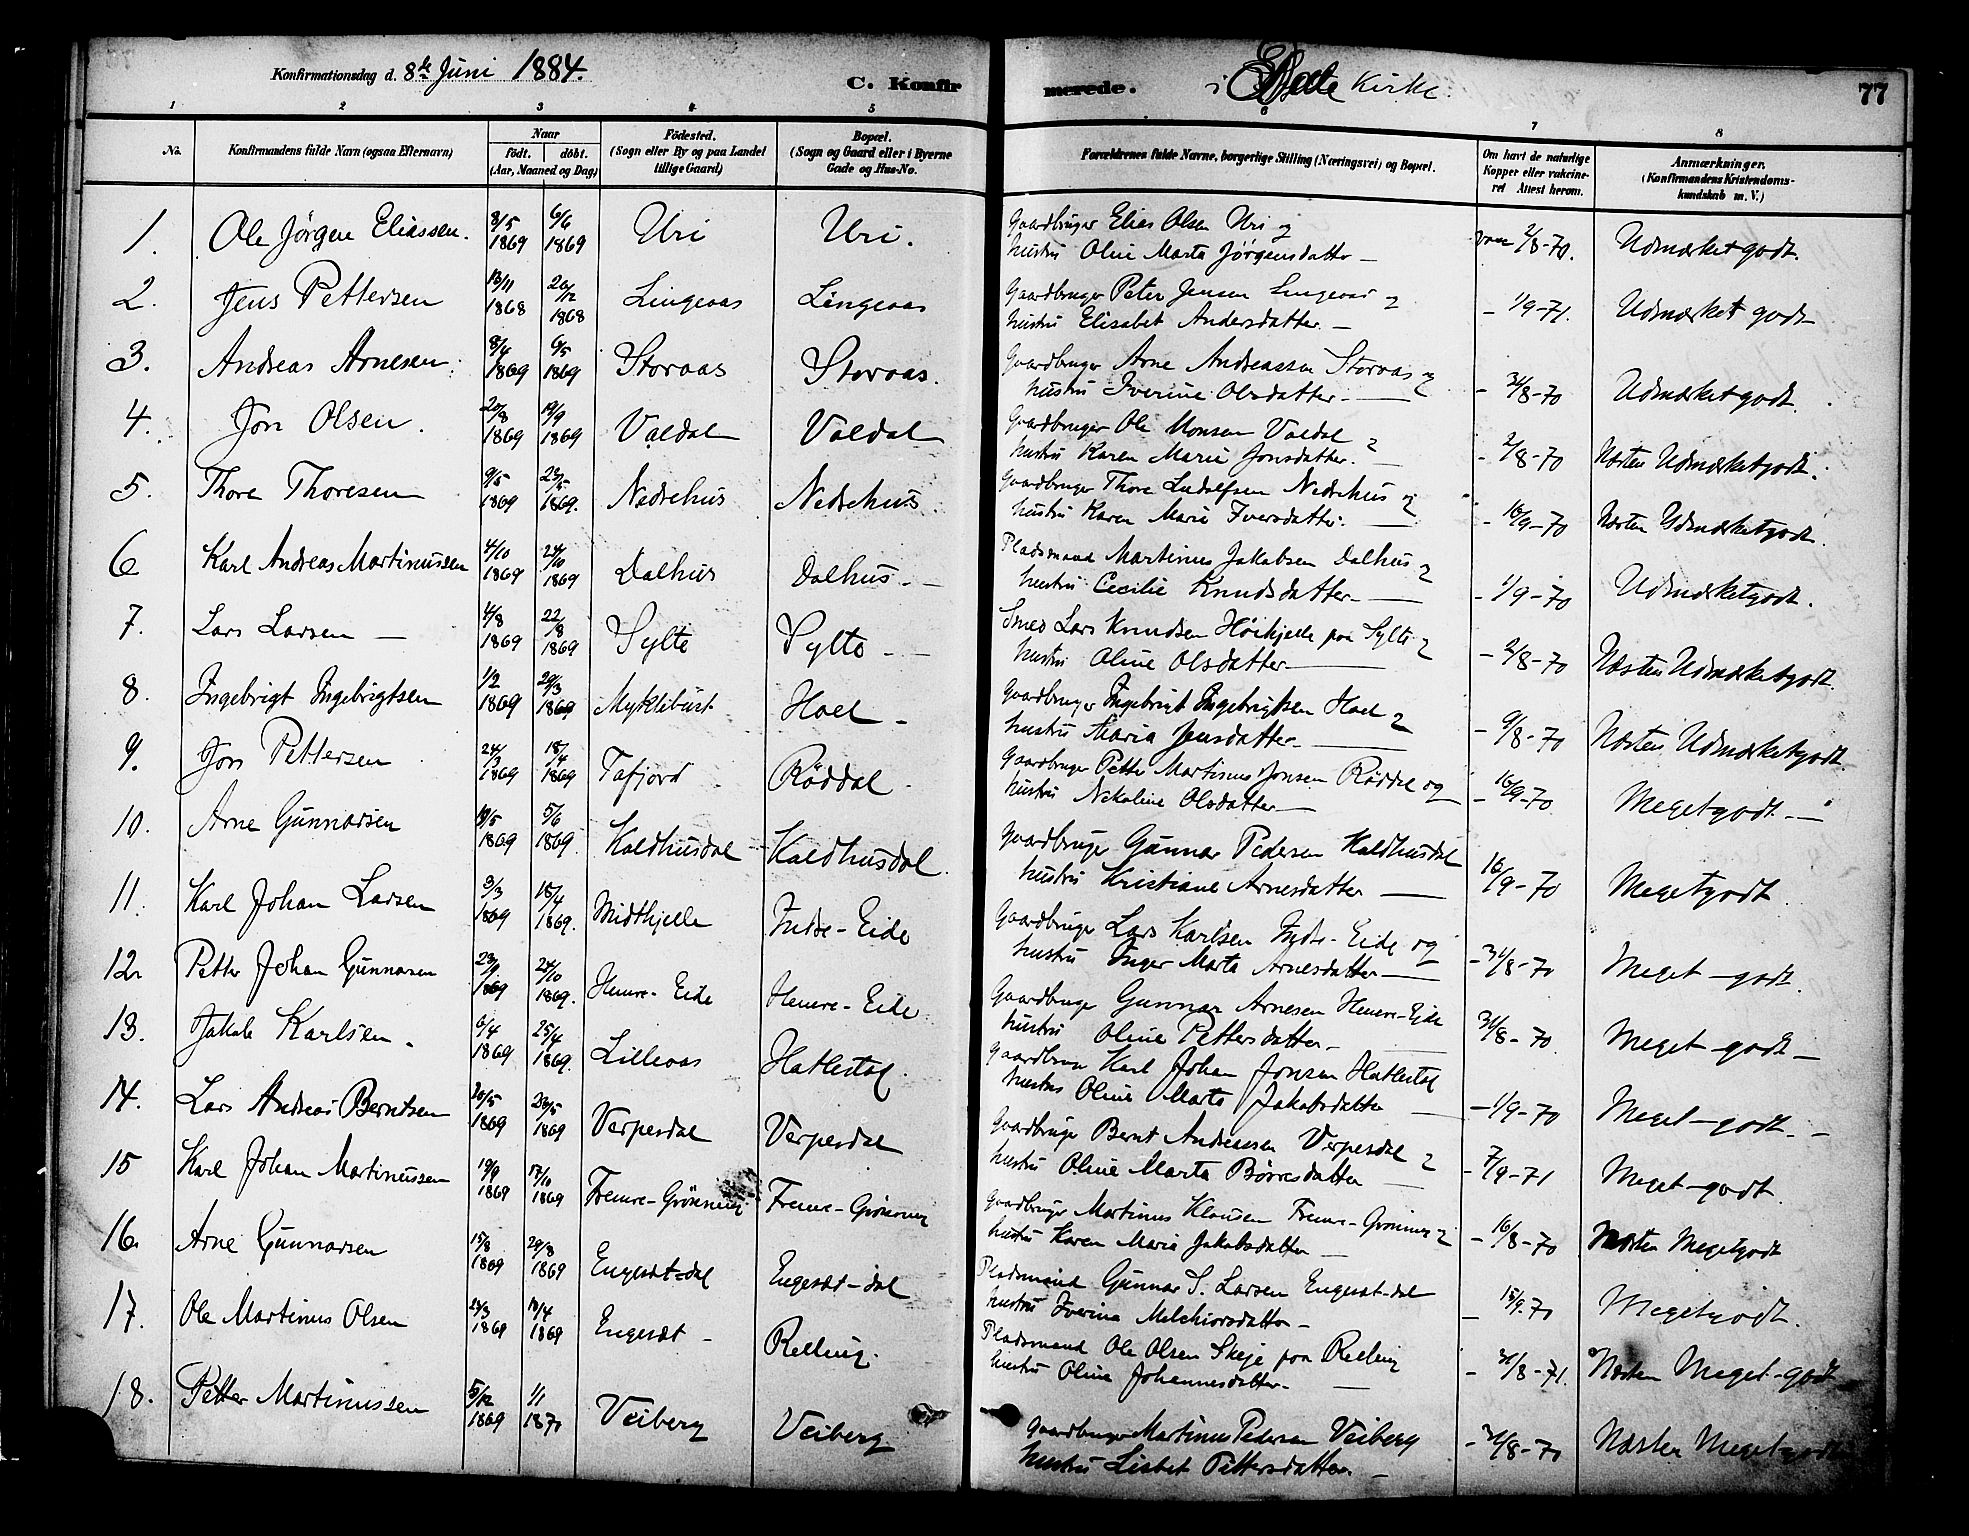 Konfirmationsdag d. 8de Juni 1884.
C. Konfirmerede. i Kirke.
77
1 2 3 4 5 6 7 8
No. Konfirmandens fulde Navn (ogsaa Efternavn) Naar født. døbt. (Aar, Maaned og Dag) Födested. (Sogn eller By og paa Landet tillige Gaard) Bopæl. (Sogn og Gaard eller i Byerne Gade og Hus-No. Forældrenes fulde Navne, borgerlige Stilling (Næringsvei) og Bopæl. Om havt de naturlige Kopper eller vakcineret Attest herom. Anmærkninger. (Konfirmandens Kristendomskundskab m. V.)
1. Ole Jörgen Eliassen. 8/5 1869 6/6 1869 Uri Uri. Gaardbruger Elias Olsen Uri og Hustru Oline Marta Jörgensdatter — 2/8-70. Udmærket godt.
2. Jens Pettersen 13/11 1868 20/12 1868 Lingeaas Lingeaas Gaardbruger Peter Jensen Lingeaas Hustru Elisabet Andersdatter — - 1/9-71. Udmærket godt
3. Andreas Arnesen. 8/4 1869 6/5 1869 Storaas Storaas. Gaardbruger Arne Andreassen Storaas og Hustru Iverine Olsdatter — - 31/8-70 Udmærket godt.
4. Jon Olsen. 20/8 1869 19/9 1869 Valdal Valdal Gaardbruger Ole Monsen Valdal Hustru Karen Marie Jonsdatter. - 2/8-70 Næsten Udmærketgodt.
5. Thore Thoresen 9/5 1869 23/5 1869. Nedrehus Nedrehus. Gaardbruger Thore Ludolfsen Nedrehus og Hustru Karen Marie Iversdatter. — - 16/9-70 Næsten Udmærketgodt.
6 Karl Andreas Martinussen 4/10 1869 24/10 1869 Dalhus Dalhus. — Pladsmand Martinus Jakobsen Dalhus Hustru Cecilie Knudsdatter — - 1/9-70 Udmærketgodt.
7. Lars Larsen — 4/8 1869 22/8 1869 Sylte Sylte — Smed Lars Knudsen Höihjelle paa Sylte Hustru Oline Olsdatter — - 2/8-70 Næsten Udmærketgodt.
8. Ingebrigt Ingebrigtsen 1/2 1869 29/3 1869 Myklebust Hoel - Gaardbruger Ingebrigt Ingebrigtsen Hoel Hustru Maria Jensdatter — - 9/8-70 Næsten Udmærketgodt.
9. Jon Pettersen 24/3 1869 18/4 1869 Tafjord Röddal - Gaardbruger Petter Martinus Jonsen Röddal og Hustru Nikoline Olsdatter — - 16/9-70 Megetgodt. —
10. Arne Gunnarsen 5/6 1869. Kaldhusdal Kaldhusdal. Gaardbruger Gunnar Pedersen Kaldhusdal Hustru Kristiane Arnesdatter — 16/9-70 Megetgodt.
11. Karl Johan Larsen 3/3 1869 18/4 1869. Midthjelle Indre-Eide Gaardbruger Lars Karlsen Indre-Eide og Hustru Inger Marta Arnesdatter — - 31/8-70 Meget-godt.
12. Petter Johan Gunnarsen 1869 24/10 1869. Henere-Eide Henere-Eide. Gaardbruger Gunnar Arnesen Henere-Eide Hustru Oline Pettersdatter — 31/8-70 Meget-godt —
13. Jakob Karlsen. 6/4 1869 25/4 1869. Lilleaas Hatlestal. Karl Johan Jonsen Hatlestal Hustru Oline Marta Jakobsdatter — - 1/9-70 Meget-godt. —
14. Lars Andreas Berntsen 1869 1869 Verpesdal Verpesdal Gaardbruger Bernt Andreassen Verpesdal Hustru Oline Marta Börresdatter — - 7/9-71 Meget-godt.
15 Karl Johan Martinussen 19/9 1869 17/10 1869 Fremre-Gröning Fremre-Gröning Gaardbruger Martinus Klausen Fremre-Gröning Hustru Karen Marie Jakobsdatter — - 16/8-70 Næsten Megetgodt
16. Arne Gunnarsen 15/8 1869 29/8 1869 Engesæt-dal Engesæt-dal Pladsmand Gunnar S. Larsen Engesæt-dal Hustru Iverina Melchiorsdatter — - 15/9.70 Megetgodt.
17. Ole Martinus Olsen 1869 18/4 1869 Engesæt - Relling. Pladsmand Ole Olsen Skeje paa Relling Hustru Oline Johannesdatter — - 31/8-71. Næsten Meget-godt
18. Petter Martinussen 5/12 1869 1/1 1870 Veiberg Veiberg Gaardbruger Martinus Pedersen Veiberg Hustru Lisbet Pettersdatter. — - 31/8-70 Næsten Megetgodt